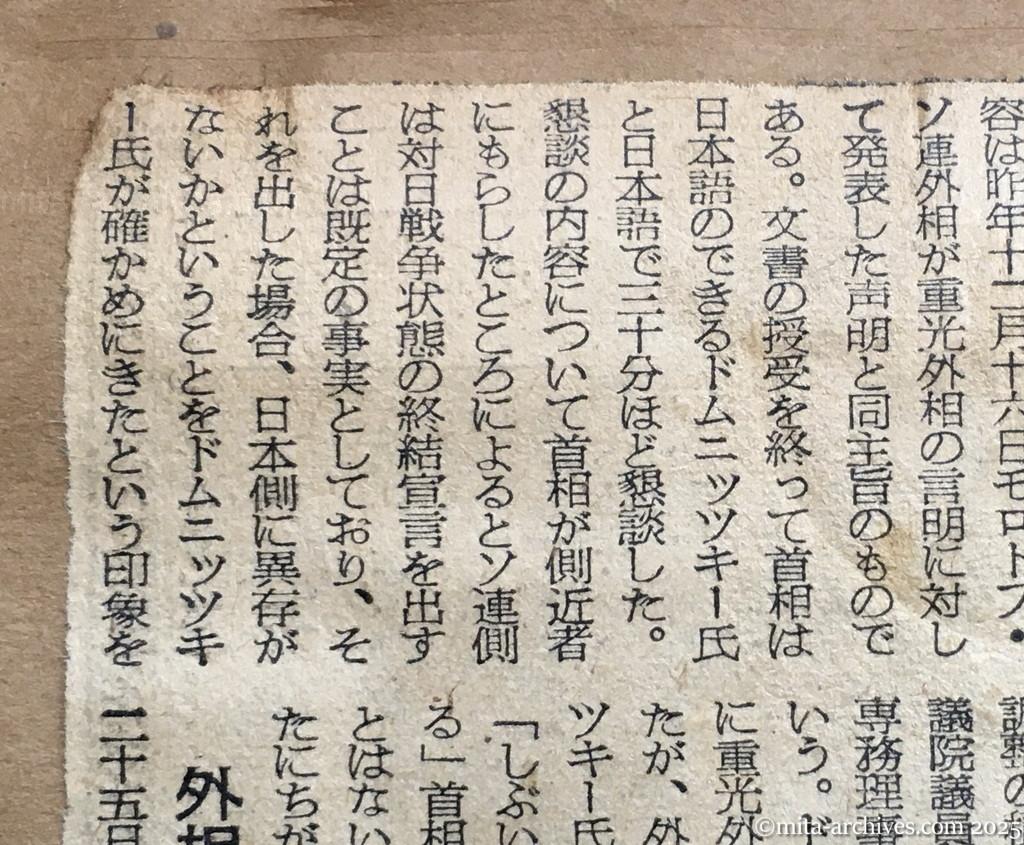 容は昨年十二月十六日モロトフ・
ソ連外相が重光外相の言明に対し
て発表した声明と同主旨のもので
ある。文書の授受を終って首相は
日本語のできるドムニッツキー氏
と日本語で三十分ほど懇談した。
懇談の内容について首相が側近者
にもらしたところによるとソ連側
は対日戦争状態の終結宣言を出す
ことは既定の事実としており、そ
れを出した場合、日本側に異存が
ないかということをドムニッツキ
ー氏が確かめにきたという印象を
議院議員
専務理事
いう。ド
に重光外
たが、外
ツキー氏
「しぶい
る」首相
とはない
たにちが
外相
二十五日
©mita-archives.com 2025